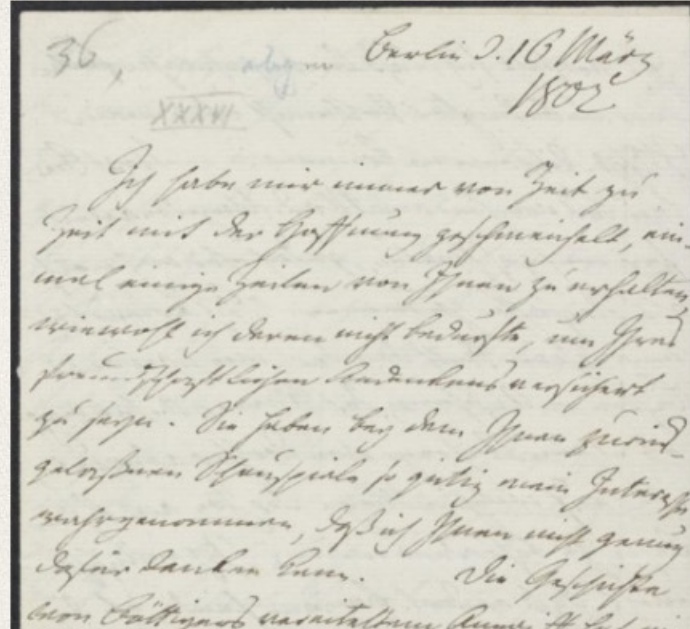 36,
Berlin d. 16 März
1802
XXXVI
Ich habe mir immer von Zeit zu
Zeit mit der Hoffnung geschmeichelt, ein-
mal einige Zeilen von Ihnen zu erhalten,
wiewohl ich deren nicht bedurfte, um Ihres
freundschaftlichen Andenkens versichert
zu seyn. Sie haben bey dem Ihnen zurück-
gelaßnen Schauspiele so gütig mein Interesse
wahrgenommen, daß ich Ihnen nicht genug
dafür danken kann. Die Geschichte
von Böttigers vereiteltem Angriff